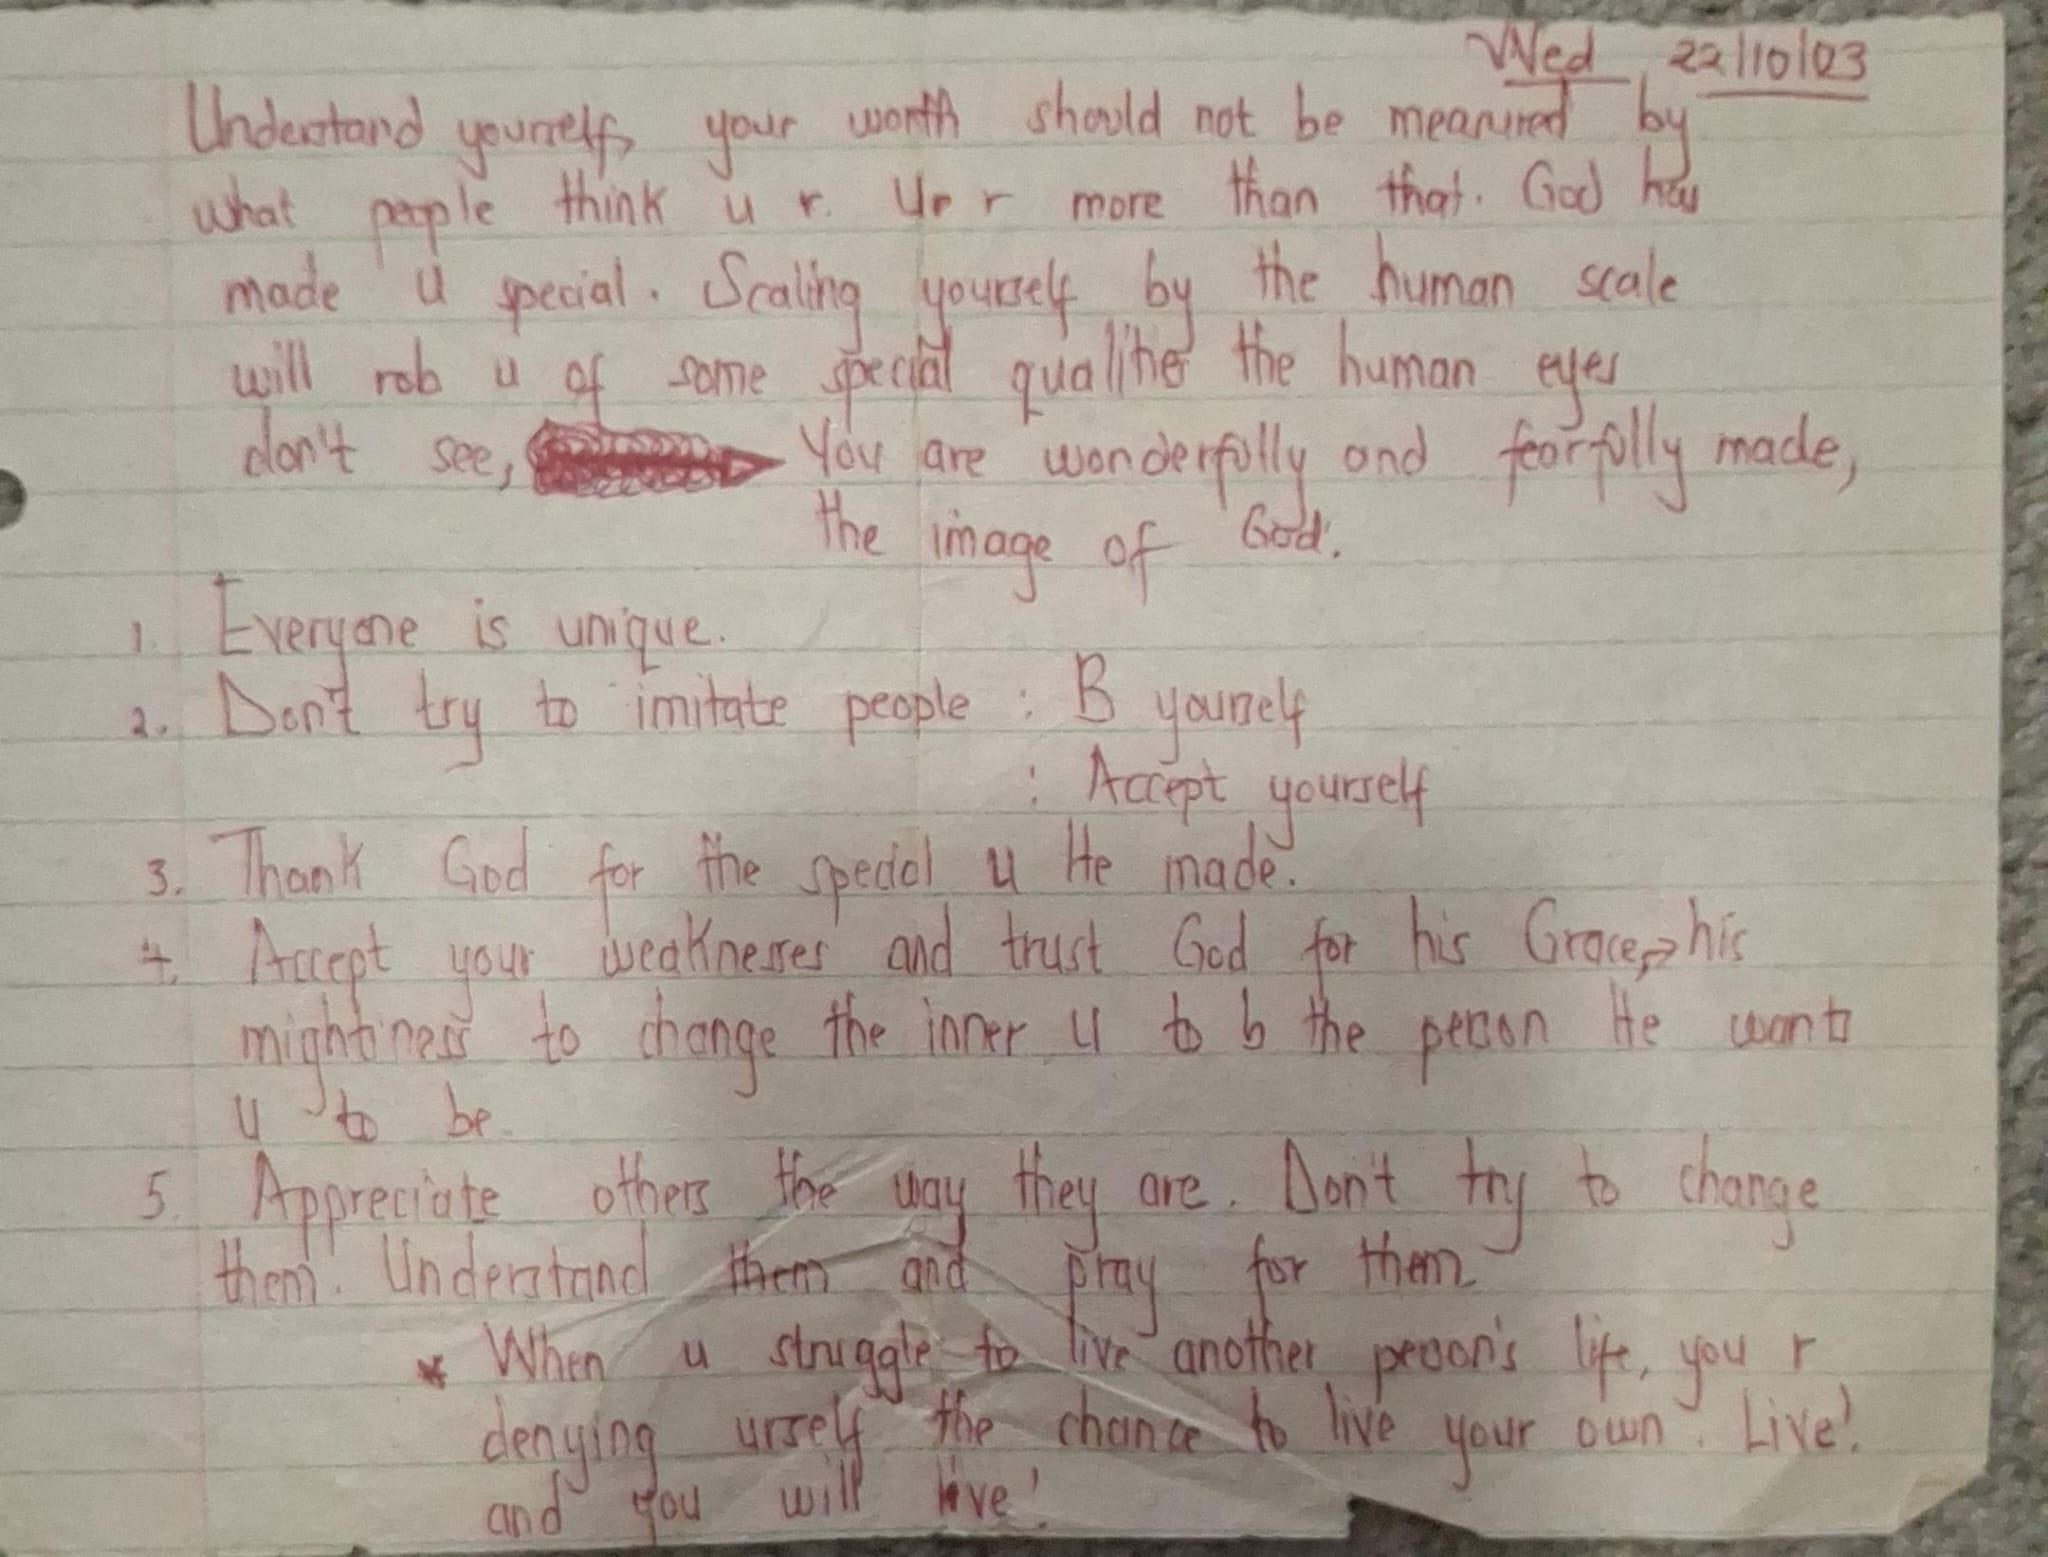 Wed 22/10/03
Understand yourself, your worth should not be measured by
what people think u r. U r more than that. God has
made u special. Scaling yourself by the human scale
will rob u of some special qualities the human eyes
don't see, You are wonderfully and fearfully made,
the image of God.
1. Everyone is unique.
2. Don't try to imitate people : B yourself
: Accept yourself
3. Thank God for the special u He made.
4. Accept your weaknesses and trust God for his Grace, his
mightiness to change the inner u to b the person He wants
u to be.
5. Appreciate others the way they are. Don't try to change
them. Understand them and pray for them
* When u struggle to live another person's life, you r
denying urself the chance to live your own. Live!
and you will live!